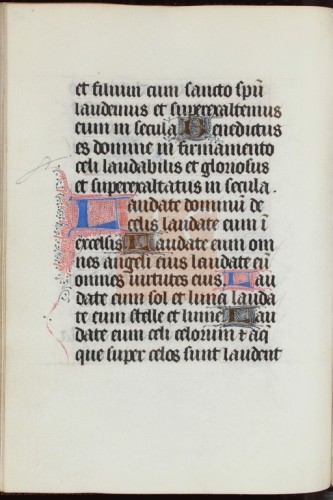 et filium cum sancto spũ
laudemus et superexaltemus
eum in secula Benedictus
es domine in firmamento
celi laudabilis et gloriosus
et superexaltatus in secula.
Laudate dominũ de
celis laudate eum ĩ
excelsis Laudate eum om
nes angeli eius laudate eũ
omnes uirtutes eius Lau
date eum sol et luna lauda
te eum stelle et lumẽ Lau
date eum celi celorum ⁊ aq̃
que super celos sunt laudent